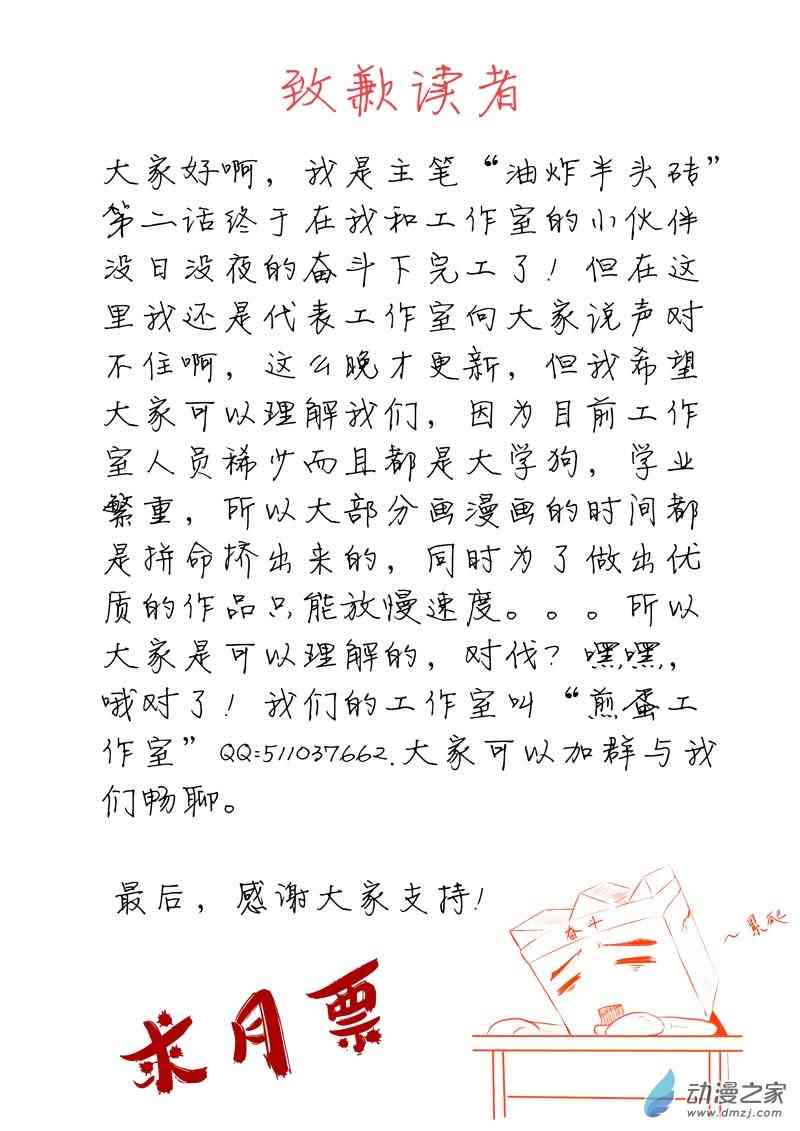 致歉读者
大家好啊，我是主笔“油炸半头砖”
第二话终于在我和工作室的小伙伴
没日没夜的奋斗下完工了！但在这
里我还是代表工作室向大家说声对
不住啊，这么晚才更新，但我希望
大家可以理解我们，因为目前工作
室人员稀少而且都是大学狗，学业
繁重，所以大部分画漫画的时间都
是拼命挤出来的，同时为了做出优
质的作品只能放慢速度。。。所以
大家是可以理解的，对伐？嘿嘿，
哦对了！我们的工作室叫“煎蛋工
作室”QQ:511037662.大家可以加群与我
们畅聊。
最后，感谢大家支持！
奋斗
～累死
求月票
动漫之家
www.dmzj.com